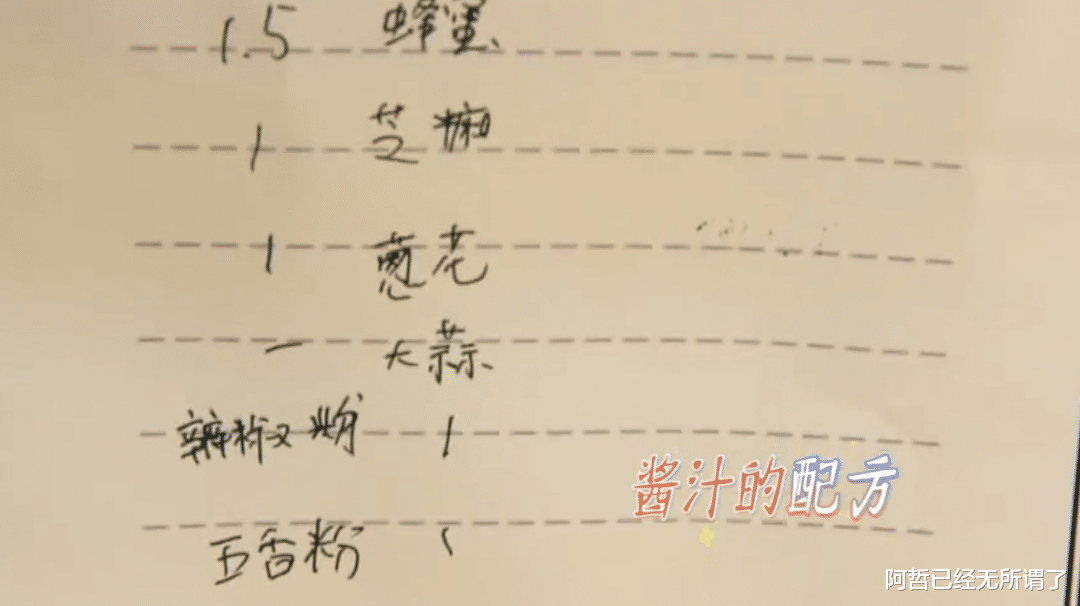 1.5 蜂蜜
1 芝麻
1 葱花
一 大蒜
辣椒粉 1
酱汁的配方
五香粉 1
阿哲已经无所谓了